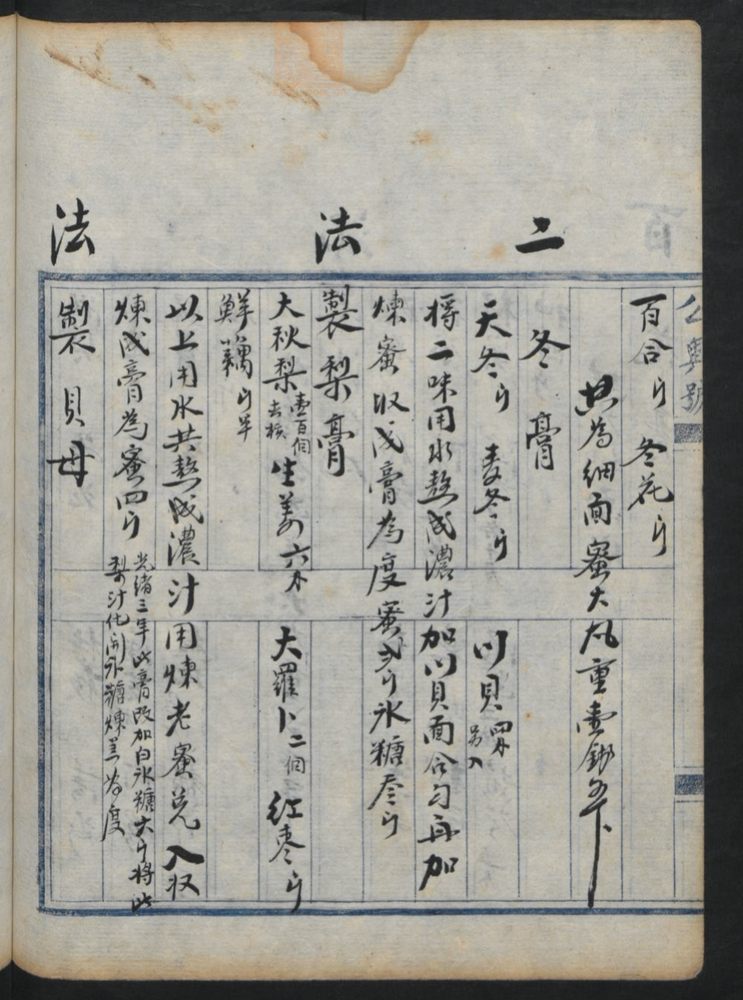 公興號
百合斤 冬花斤
共為細面蜜大丸重壹
二冬膏
天冬斤 麦冬斤 川貝 另入
將二味用水熬成濃汁加川貝面合勻再加
煉蜜收成膏為度蜜弍斤氷糖叁斤
法製梨膏
大秋梨壹百個去核 生姜六 大羅卜二個 紅枣斤
鮮藕斤半
以上用水共熬成濃汁用煉老蜜兑入收
煉成膏為蜜四斤 光緒三年此膏改加白氷糖六斤將此
梨汁化開氷糖煉為度
法製貝母